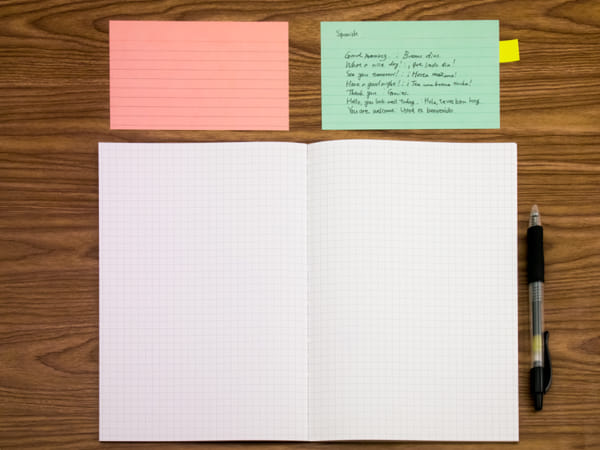 Spanish
Good morning : Buenos días.
What a nice day! : ¡Qué lindo día!
See you tomorrow! : ¡Hasta mañana!
Have a good night! : ¡Ten una buena noche!
Thank you : Gracias.
Hello, you look well today. Hola, te ves bien hoy.
You are welcome. Usted es bienvenido.